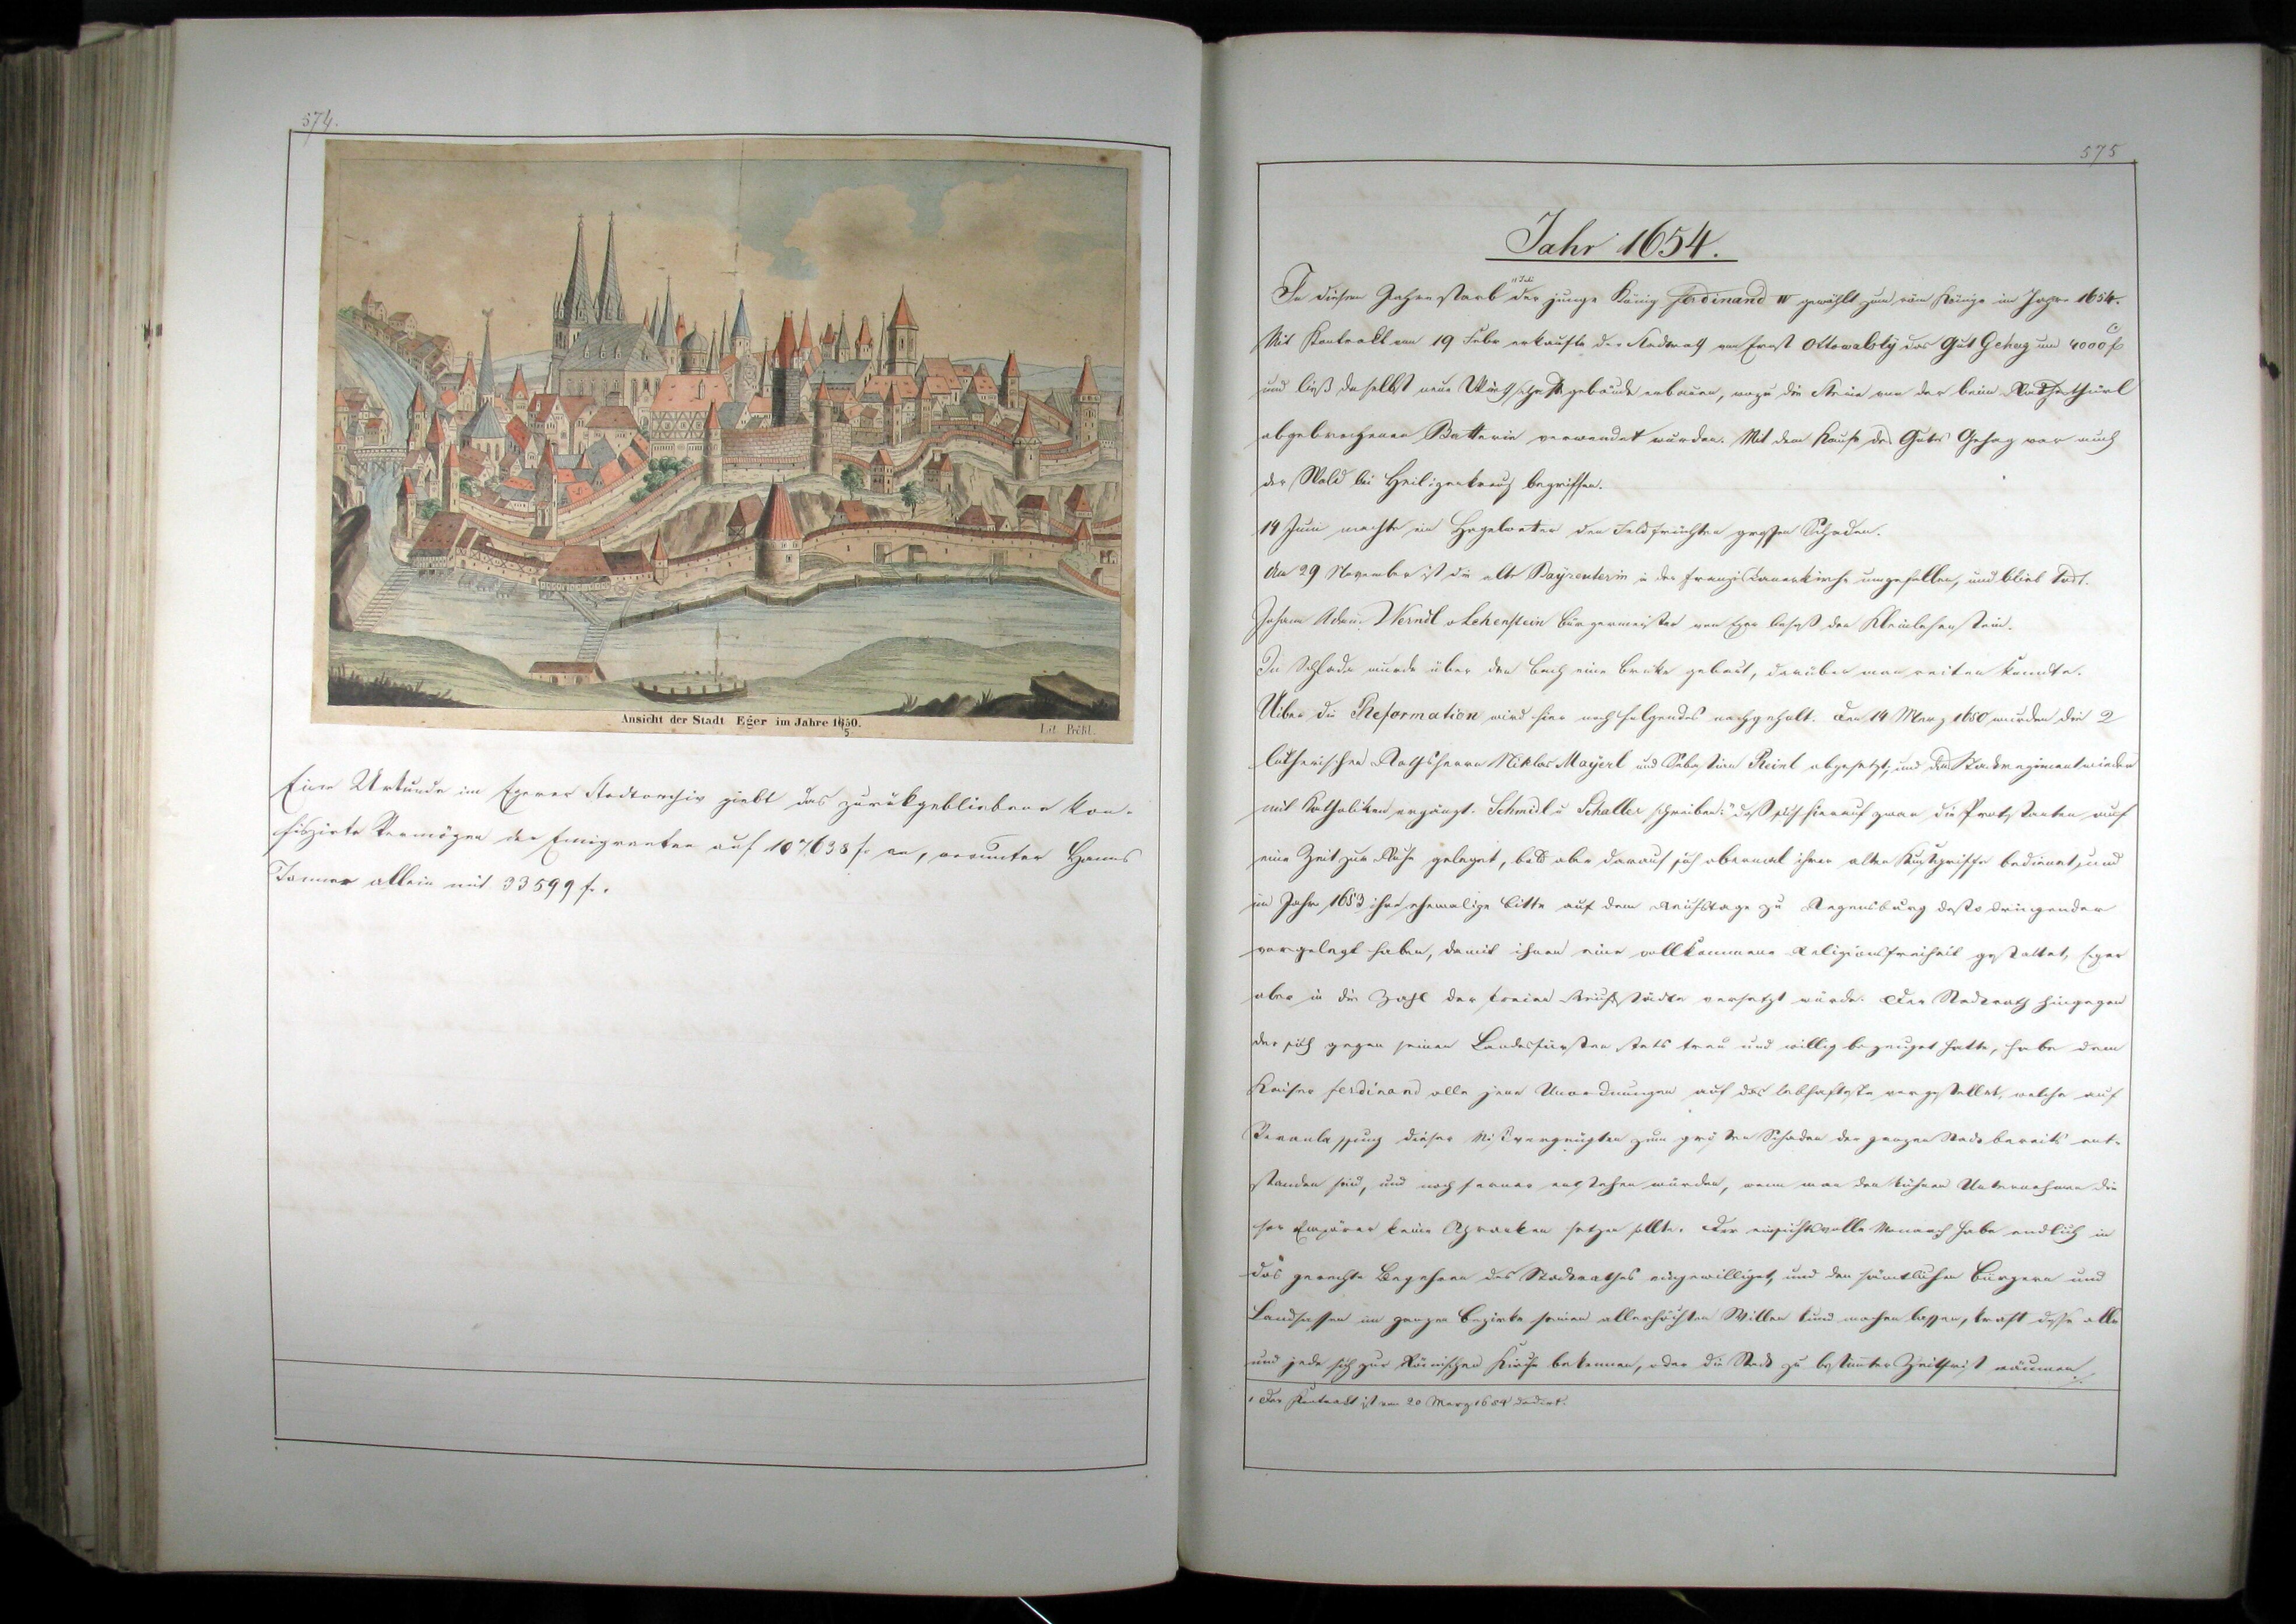 574.
Ansicht der Stadt Eger im Jahre 1650.
5
Lit. Prößl.
Eine Urkunde im Egerer Stadtarchiv giebt das zurückgebliebene kon-
fiszirte Vermögen der Emigranten auf 107638 f. an, worunter Hanns
Tanner allein mit 33599 f.
575
Jahr 1654.
In diesem Jahre starb der junge König Ferdinand IV gewählt zum röm Könige im Jahre 1654.
Mit Kontrakt vom 19 Febr erkaufte der Stadtrath von Ernst Ottowalsky das Gut Gehag um 4000 f
und ließ daselbst neue Wirthschaftsgebäude erbauen, wozu die Steine von der beim Rathsthürl
abgebrochenen Batterie verwendet wurden. Mit dem Kaufe des Gutes Gehag war auch
der Wald bei Heiligenkreuz begriffen.
14 Juni machte ein Hagelwetter den Feldfrüchten großen Schaden.
Am 29 November ist die alte Bayreuterin in der Franziskanerkirche umgefallen, und blieb todt.
Johann Adam Werndl v Lehenstein Bürgermeister von Eger besaß den Kleinlehenstein.
In Schlada wurde über den Bach eine Brücke gebaut, darüber man reiten konnte.
Uiber die Reformation wird hier noch folgendes nachgeholt. Den 14 März 1650 wurden die 2
lutherischen Rathsherrn Niklas Mayerl und Sebastian Reinl abgesetzt, und das Stadtregiment wieder
mit Katholiken ergänzt. Schmidl u Schaller schreiben: "daß sich hierauf zwar die Protestanten auf
eine Zeit zur Ruhe geleget, bald aber darauf sich abermal ihrer alten Kunstgriffe bedienet, und
im Jahr 1653 ihre ehemalige Bitte auf dem Reichstage zu Regensburg desto dringender
vorgelegt haben, damit ihnen eine vollkommene Religionsfreiheit gestattet, Eger
aber in die Zahl der freien Reichsstädte versetzt würde. Der Stadtrath hingegen
der sich gegen seinen Landesfürsten stets treu und willig bezeuget hatte, habe dem
Kaiser Ferdinand alle jene Unordnungen auf das lebhafteste vorgestellet, welche auf
Veranlassung dieser Mißvergnügten zum größten Schaden der ganzen Stadt bereits ent-
standen sind, und noch ferner entstehen würden, wenn man den kühnen Unternehmen die
ser Empörer keine Schranken setzen sollte. Der einsichtsvolle Monarch habe endlich in
das gerechte Begehren des Stadtrathes eingewilliget, und den sämtlichen Bürgern und
Landsassen im ganzen Bezirke seinen allerhöchsten Willen kund machen lassen, kraft dessen alle
und jede sich zur Römischen Kirche bekennen, oder die Stadt zu bestimmter Zeitfrist räumen
Der Kontrakt ist vom 20 März 1654 datirt.